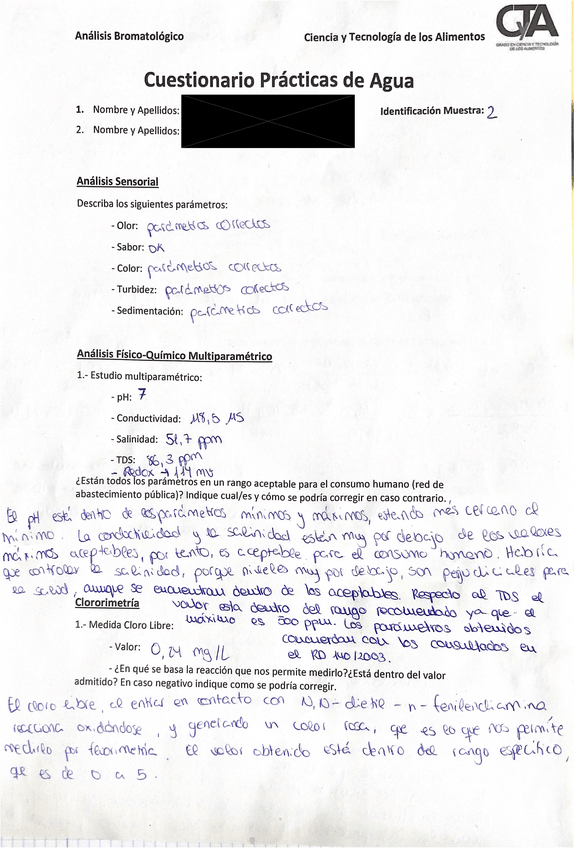 Análisis Bromatológico
Ciencia y Tecnología de los Alimentos
CyTA
GRADO EN CIENCIA Y TECNOLOGÍA
DE LOS ALIMENTOS
Cuestionario Prácticas de Agua
1. Nombre y Apellidos:
Identificación Muestra: 2
2. Nombre y Apellidos:
Análisis Sensorial
Describa los siguientes parámetros:
- Olor: parámetros correctos
- Sabor: OK
- Color: parámetros correctos
- Turbidez: parámetros correctos
- Sedimentación: parámetros correctos
Análisis Físico-Químico Multiparamétrico
1.- Estudio multiparamétrico:
- pH: 7
- Conductividad: 48,5 µS
- Salinidad: 51,7 ppm
- TDS: 86,3 ppm
- Redox → 114 mv
¿Están todos los parámetros en un rango aceptable para el consumo humano (red de
abastecimiento pública)? Indique cual/es y cómo se podría corregir en caso contrario.
El pH está dentro de los parámetros mínimos y máximos, estando más cercano al
mínimo. La conductividad y la salinidad están muy por debajo de los valores
máximos aceptables, por tanto, es aceptable para el consumo humano. Habría
que controlar la salinidad, porque niveles muy por debajo, son perjudiciales para
la salud, aunque se encuentran dentro de los aceptables. Respecto al TDS el
valor esta dentro del rango recomendado ya que el
máximo es 500 ppm. Los parámetros obtenidos
concuerdan con los consultados en
el RD 140/2003.
Clororimetría
1.- Medida Cloro Libre:
- Valor: 0,24 mg/L
- ¿En qué se basa la reacción que nos permite medirlo?¿Está dentro del valor
admitido? En caso negativo indique como se podría corregir.
El cloro libre, al entrar en contacto con N,N-dietil-n-fenilendiamina
reacciona oxidándose, y generando un color rosa, que es lo que nos permite
medirlo por fotorimetría. El valor obtenido está dentro del rango específico,
que es de 0 a 5.